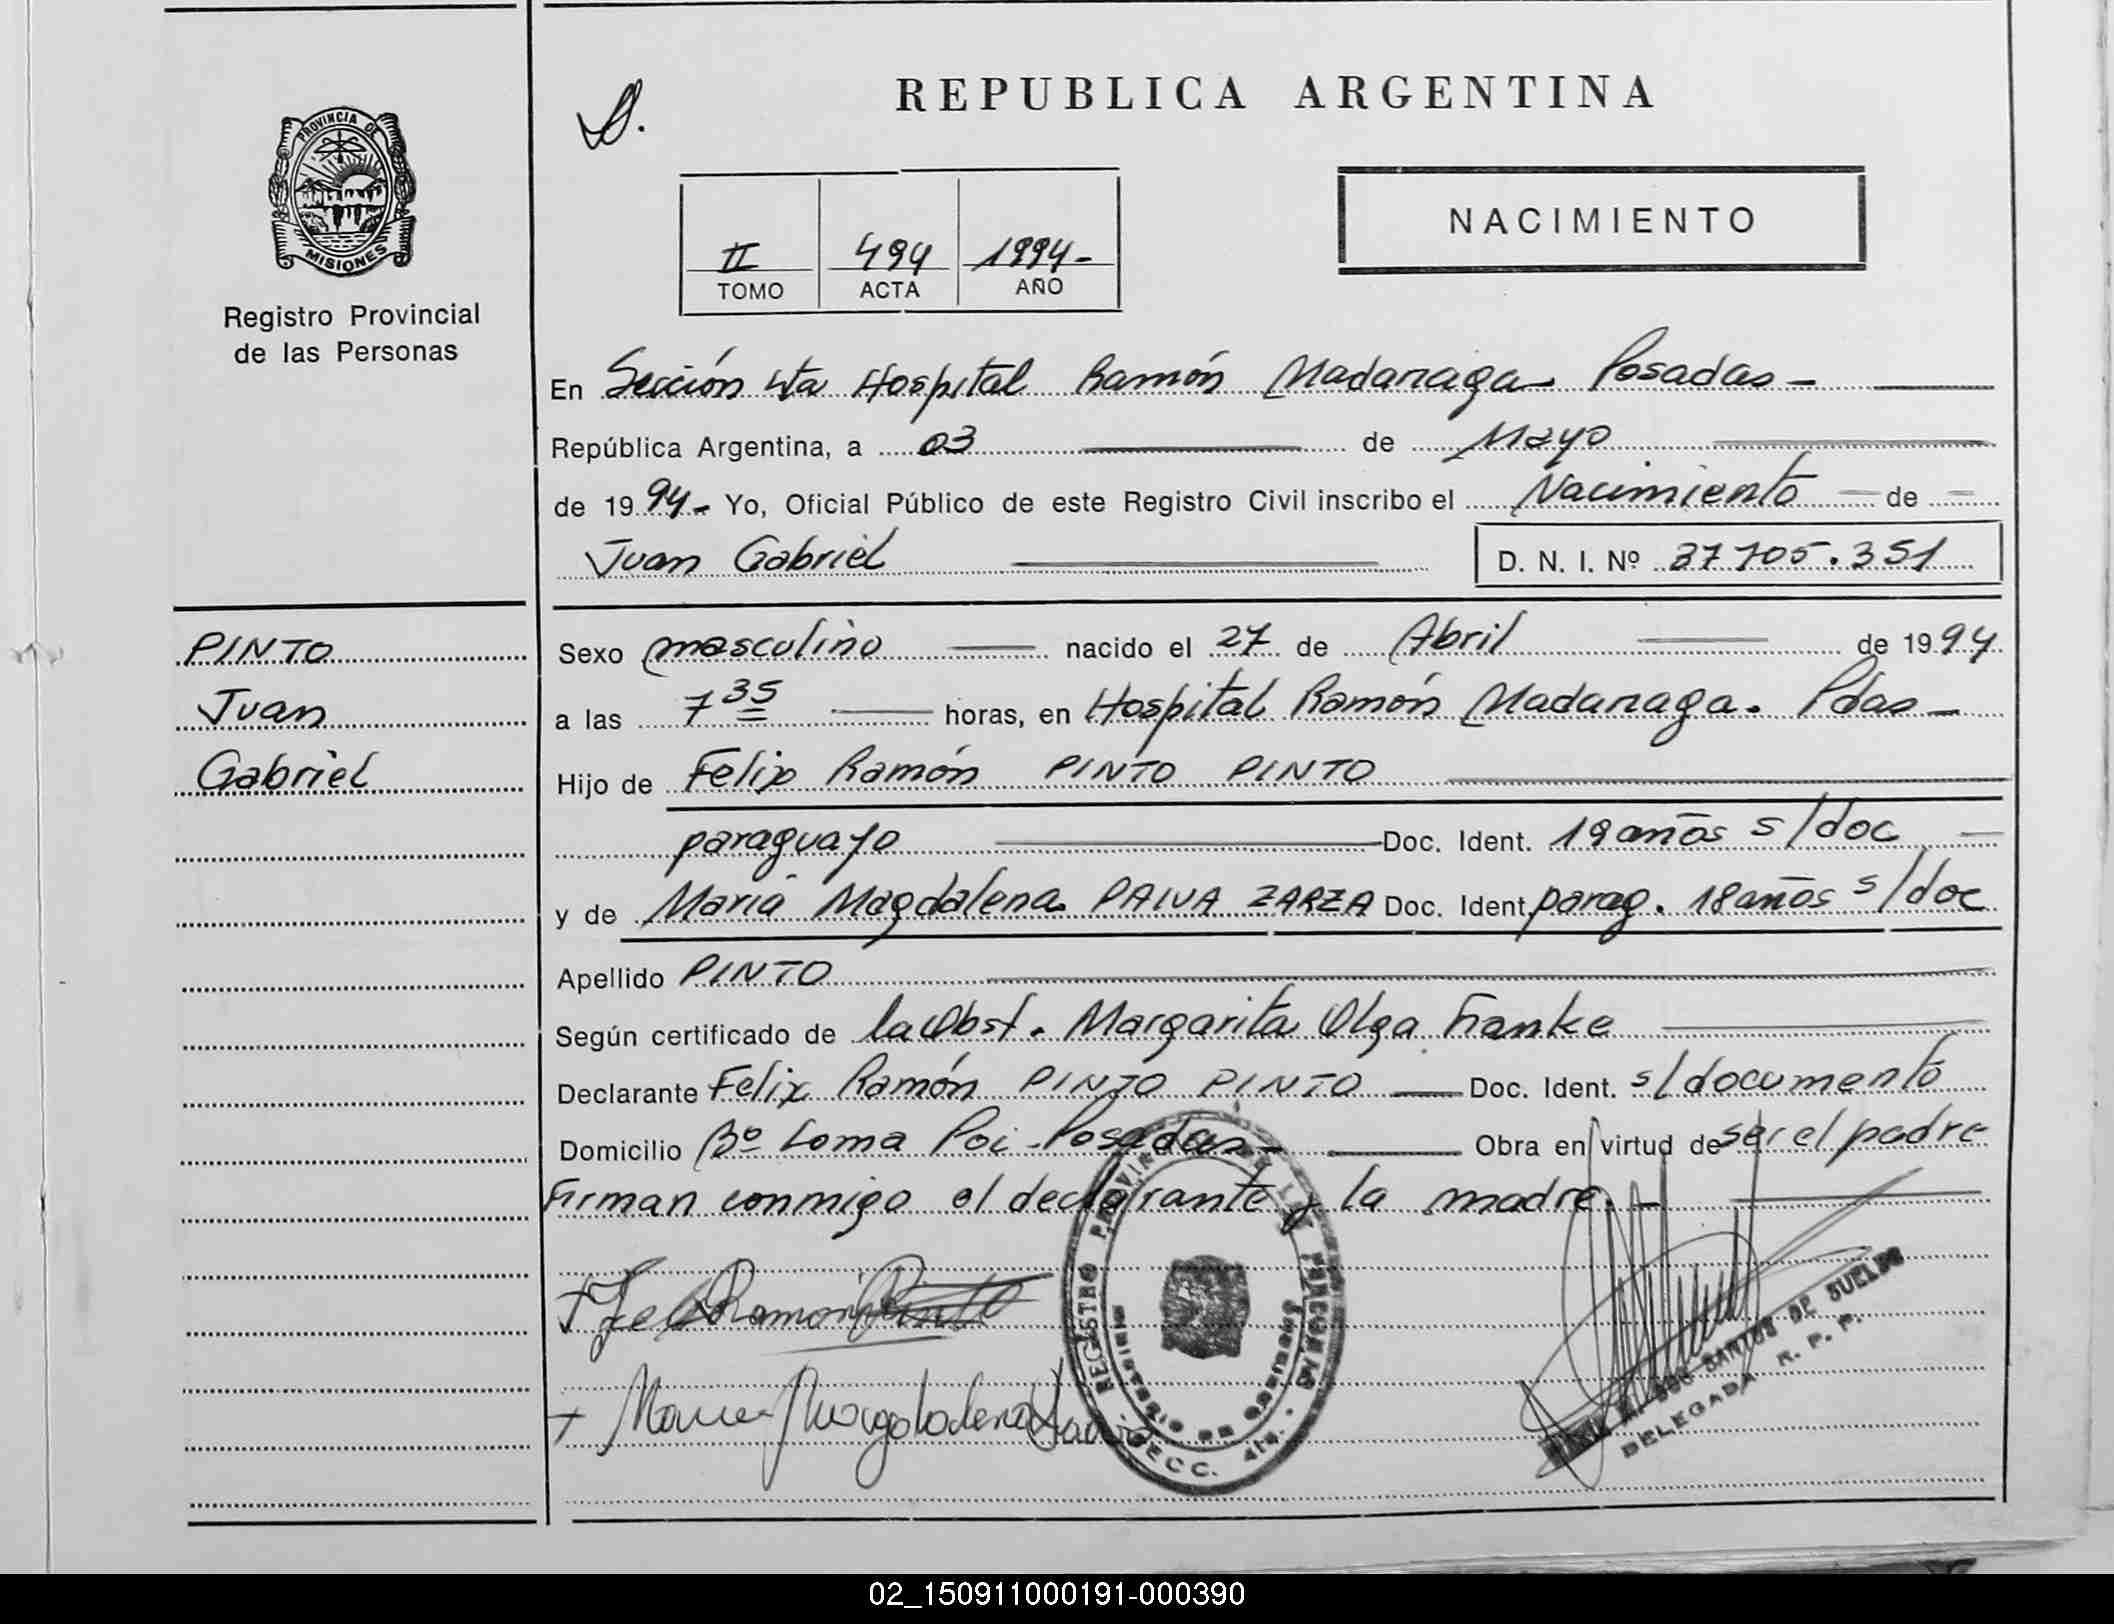 PROVINCIA DE
MISIONES
Registro Provincial
de las Personas
REPUBLICA ARGENTINA
II 494 1994-
TOMO ACTA AÑO
NACIMIENTO
En Sección 4ta Hospital Ramón Madariaga Posadas -
República Argentina, a 03 de Mayo
de 1994- Yo, Oficial Público de este Registro Civil inscribo el Nacimiento de
Juan Gabriel
D. N. I. Nº 37 105.351
PINTO
Juan
Gabriel
Sexo masculino nacido el 27 de Abril de 1994
a las 7 35 horas, en Hospital Ramón Madariaga. Pdas -
Hijo de Felix Ramón PINTO PINTO
paraguayo Doc. Ident. 19 años s/doc
y de María Magdalena PAIVA ZARZA Doc. Ident. parag. 18 años s/doc
Apellido PINTO
Según certificado de la Obst. Margarita Olga Franke
Declarante Felix Ramón PINTO PINTO Doc. Ident. s/documento
Domicilio Bº Loma Poi - Posadas - Obra en virtud de ser el padre
Firman conmigo el declarante y la madre. -
Felix Ramon Pinto
Maria Magdalena
REGISTRO PROVINCIAL DE LAS PERSONAS
MINISTERIO DE GOBIERNO
SECC. 4ta.
DOS SANTOS DE SUELDO
DELEGADA R. P. P.
02_150911000191-000390